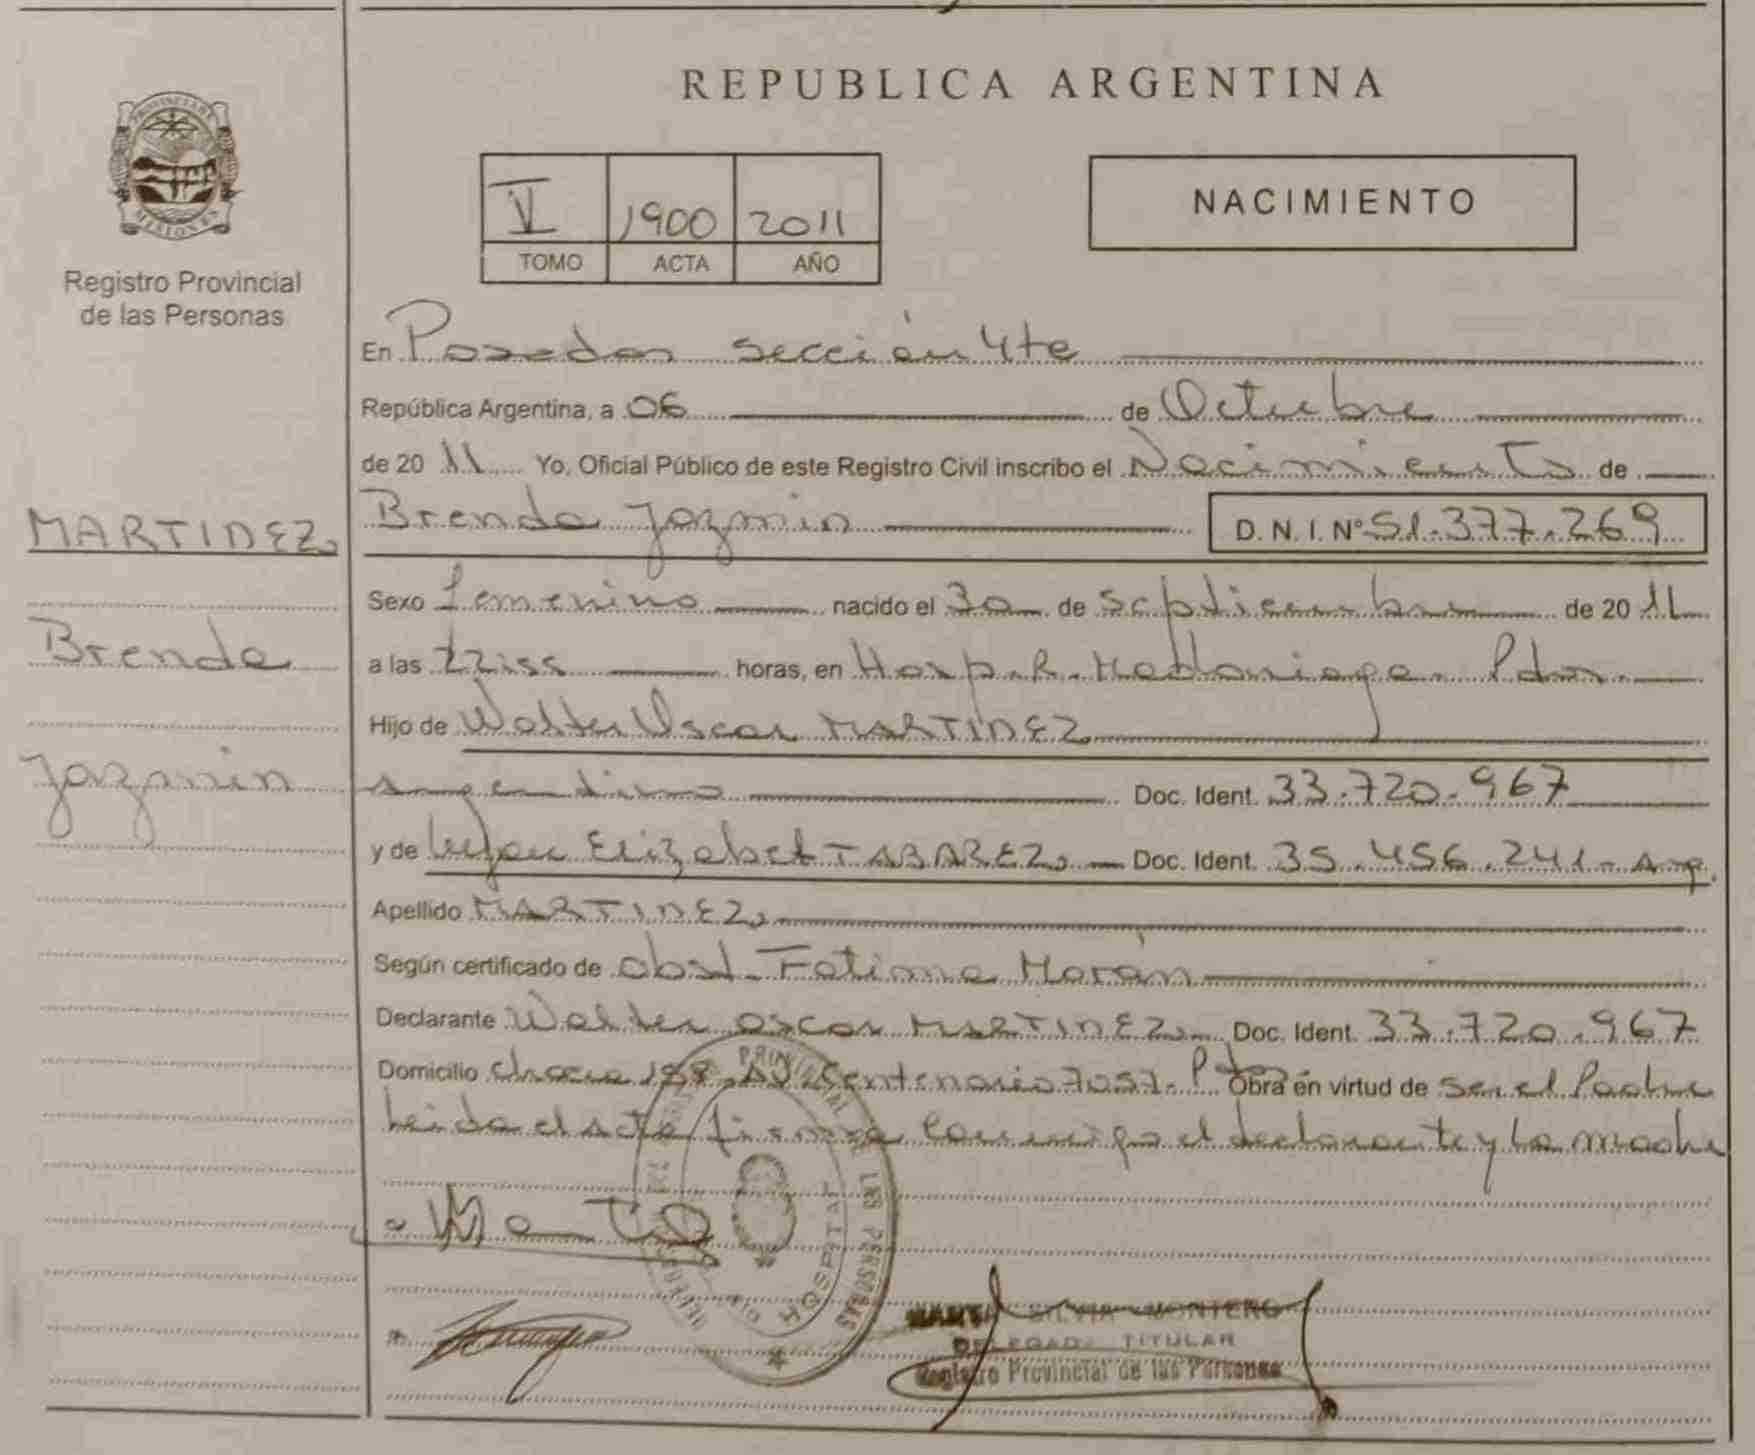 REPUBLICA ARGENTINA
PROVINCIA DE MISIONES
Registro Provincial
de las Personas
V 1900 2011
TOMO ACTA AÑO
NACIMIENTO
En Posadas sección 4ta
República Argentina, a 06 de Octubre
de 2011 Yo, Oficial Público de este Registro Civil inscribo el Nacimiento de
Brenda Jazmin D. N. I. Nº 51.377.269
MARTINEZ
Brenda
Jazmin
Sexo femenino nacido el 30 de Septiembre de 2011
a las 22:55 horas, en Hosp. R. Madariaga. Pdas.
Hijo de Walter Oscar MARTINEZ
Argentino Doc. Ident. 33.720.967
y de Elizabet TABAREZ Doc. Ident. 35.456.241 - Arg.
Apellido MARTINEZ
Según certificado de obst. Fatima Morán
Declarante Walter Oscar MARTINEZ Doc. Ident. 33.720.967
Domicilio chacra Av Centenario 7057. Obra en virtud de ser el Padre
Leida el acta firma conmigo el declarante y la madre
HOSPITAL
SILVIA MONTERO
DELEGADA TITULAR
Registro Provincial de las Personas